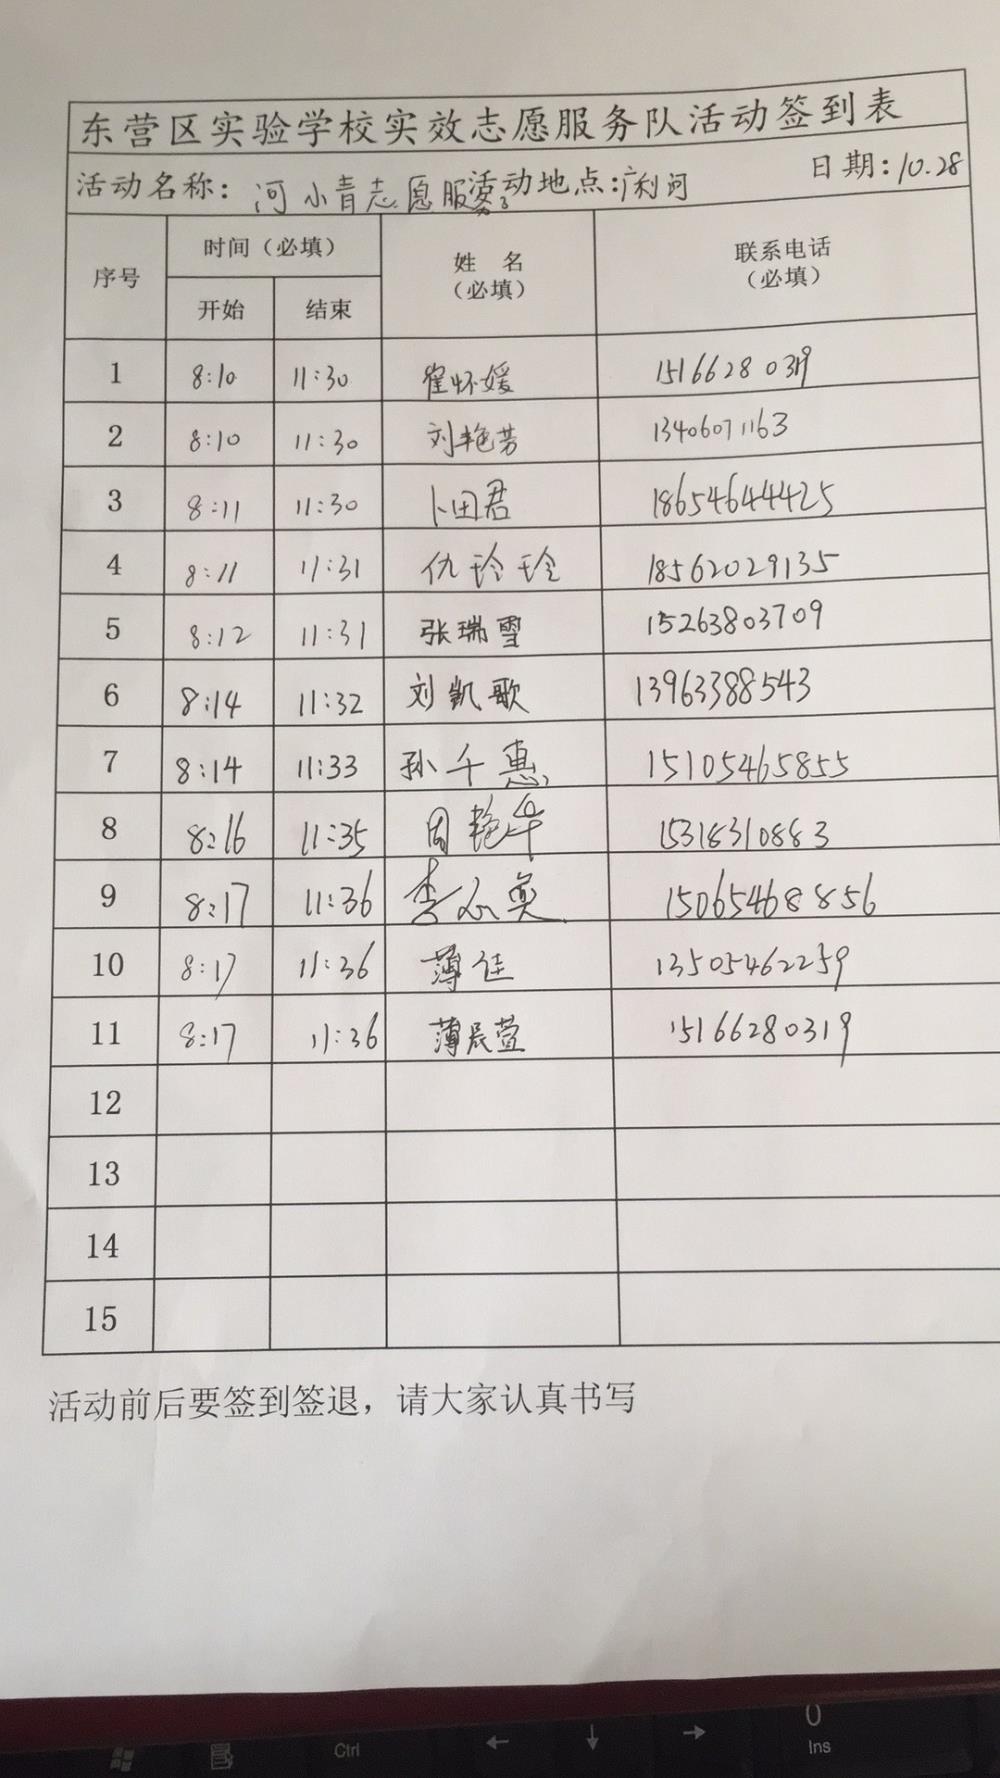 东营区实验学校实效志愿服务队活动签到表
活动名称：河小青志愿服务 活动地点：广利河 日期：10.28
序号 时间（必填） 姓 名（必填） 联系电话（必填）
开始 结束
1 8:10 11:30 崔怀媛 15166280319
2 8:10 11:30 刘艳芳 13406071163
3 8:11 11:30 卜田君 18654644425
4 8:11 11:31 仇玲玲 18562029135
5 8:12 11:31 张瑞雪 15263803709
6 8:14 11:32 刘凯歌 13963388543
7 8:14 11:33 孙千惠 15105465855
8 8:16 11:35 周艳华 15318310883
9 8:17 11:36 李 15065468856
10 8:17 11:36 薄佳 13505462259
11 8:17 11:36 薄辰萱 15166280319
12
13
14
15
活动前后要签到签退，请大家认真书写
Ctrl ← ↓ → 0 Ins